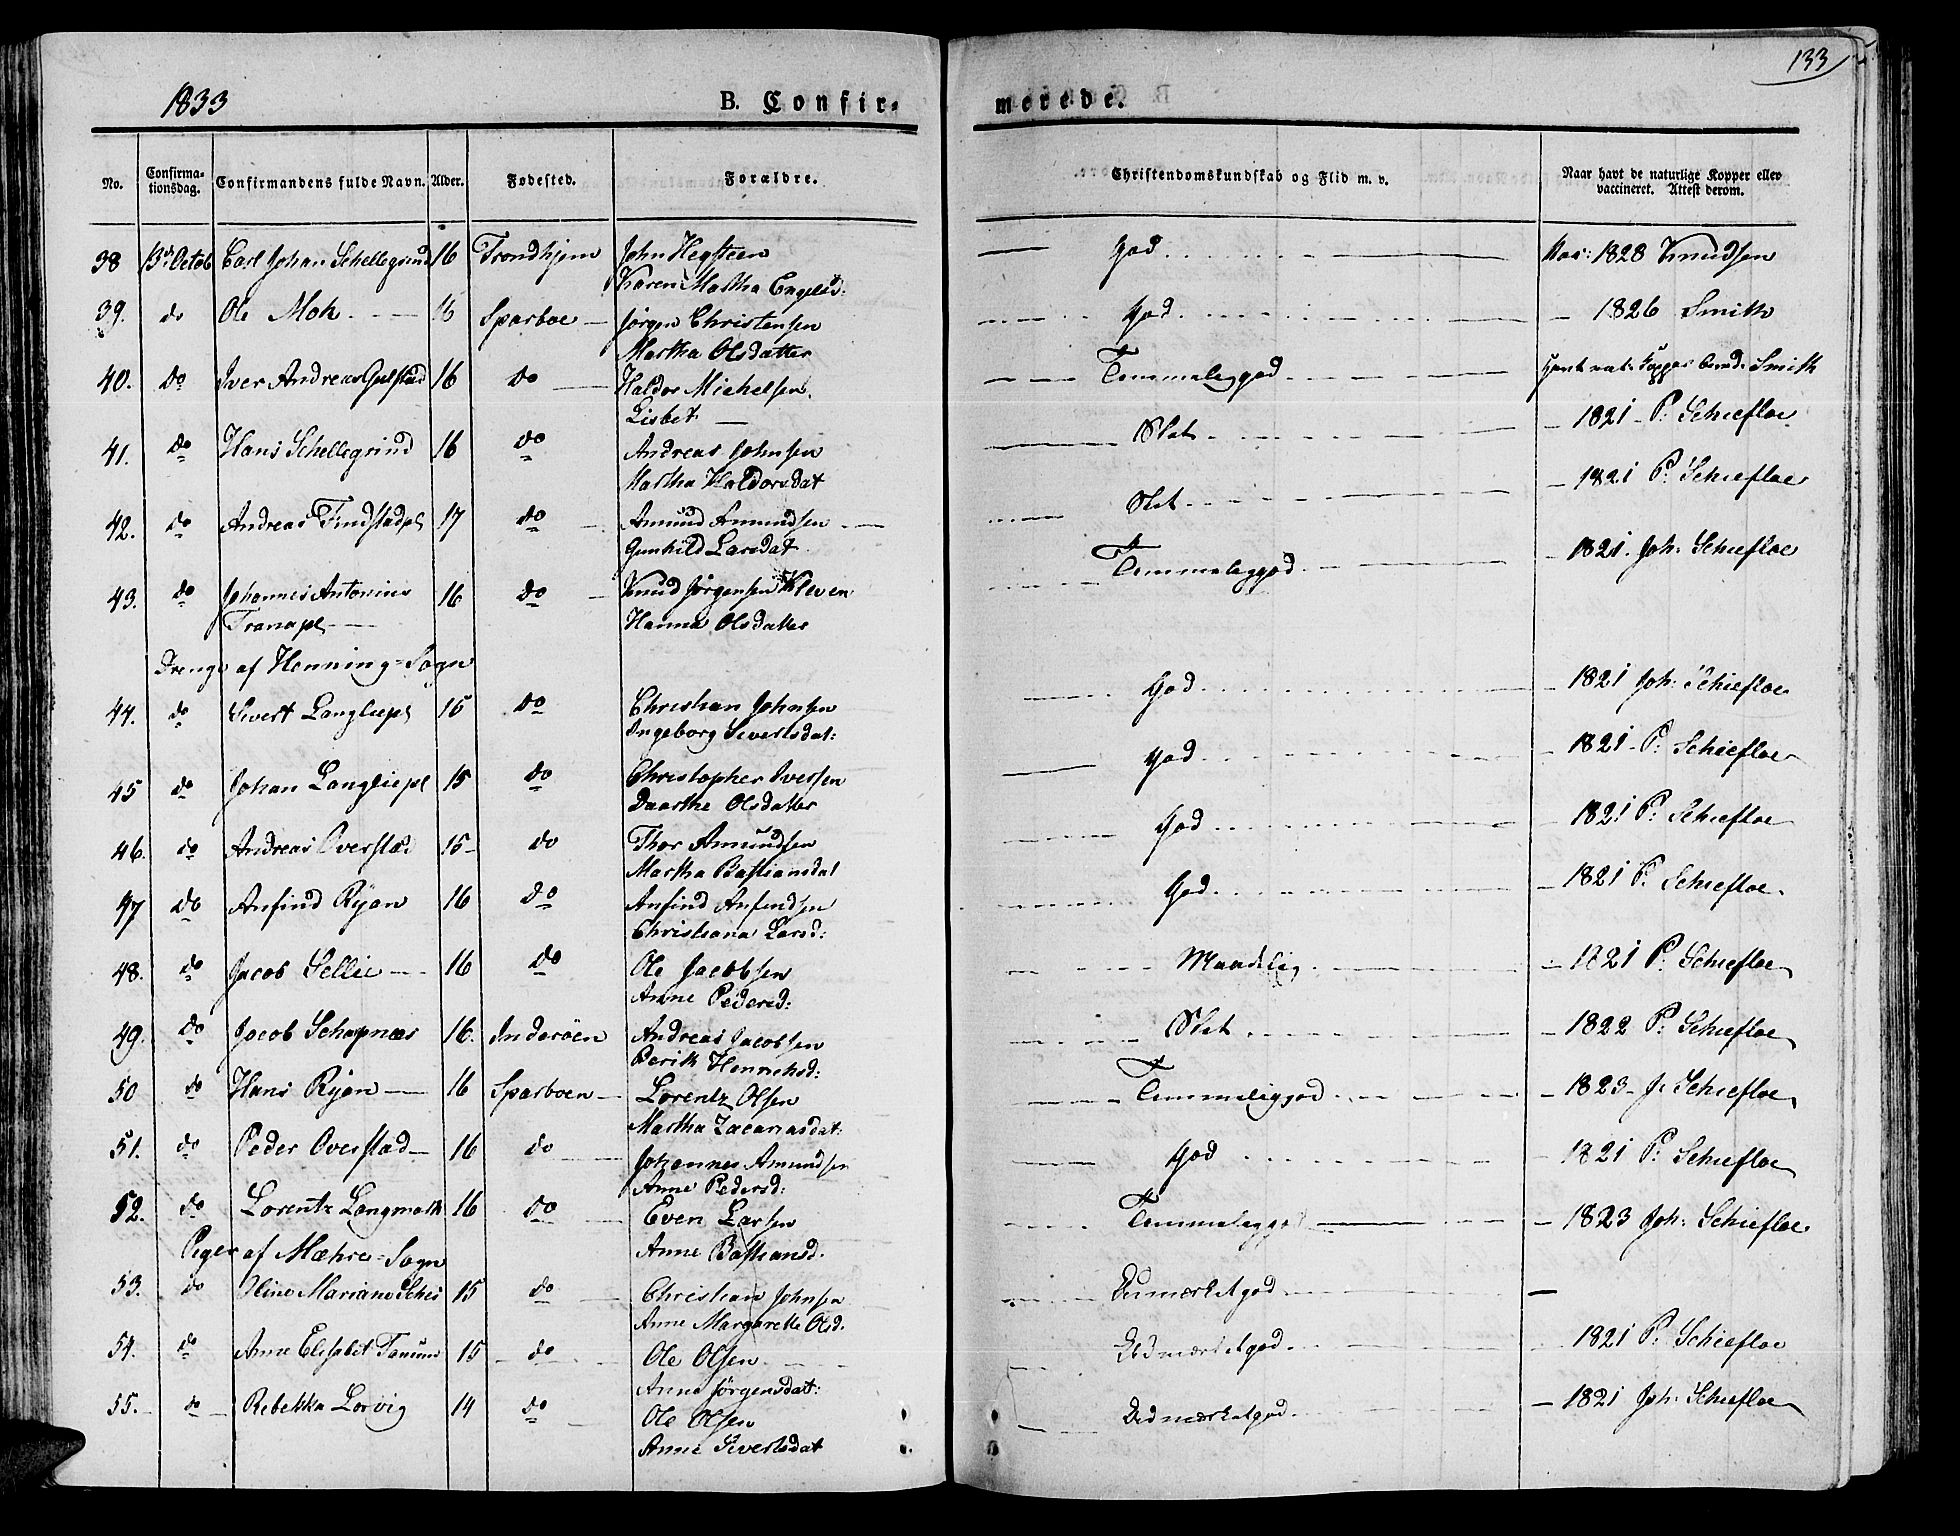 1833 B. Confir- merede. 133
No. Confirma-tionsdag. Confirmandens fulde Navn. Alder. Fødested. Forældre. Christendomskundskab og Flid m. v. Naar havt de naturlige Kopper eller vaccineret. Attest derom.
38 13de Octob Carl Johan Schellegrind 16 Trondhjem John Hegsteen God Vac: 1828 Knudsen
Karen Martha Engelsd:
39. do Ole Mok 16 Sparboe Jørgen Christensen God 1826 Smith
Martha Olsdatter
40. do Iver Andreas Gulstad 16 do Haldor Michelsen Temmeliggod havt nat: Kopper Smith
Lisbet
41. do Hans Schellegrind 16 do Andreas Johnsen Slet 1821 P. Schiefloe
Martha Haldorsdat
42. do Andreas Findstadpl 17 do Amund Amundsen Slet 1821 P. Schiefloe
Gunhild Larsdat
43. do Johannes Antonius 16 do Knud Jørgensen Kleven Temmeliggod 1821. Joh: Schiefloe
Tranapl Hanna Olsdatter
Drenge af Henning-Sogn
44. do Sivert Langliepl 15 do Christian Johnsen God 1821 Joh: Schiefloe
Ingeborg Sivertsdat:
45 do Johan Langliepl 15 do Christopher Iversen God 1821 P: Schiefloe
Daarthe Olsdatter
46. do Andreas Overstad 15 do Thor Amundsen God 1821 P. Schiefloe
Martha Bastiansdat
47 do Anfind Ryan 16 do Anfind Anfindsen God 1821 P. Schiefloe.
Christiana Larsd:
48. do Jacob Sellie 16 do Ole Jacobsen Maadelig 1821 P. Schiefloe
Anne Pedersd:
49. do Jacob Schapnæs 16. Inderöen Andreas Jacobsen Slet 1822 P: Schiefloe
Berith Henrichsd:
50 do Hans Ryan 16 Sparboen Lorentz Olsen Temmeliggod 1823 J. Schiefloe
Martha Zacariasdat:
51. do Peder Overstad 16 do Johannes Amundsen God 1821 P: Schiefloe
Anne Pedersd:
52. do Lorentz Langmark 16 do Even Larsen Temmeliggod 1823 Joh: Schiefloe
Piger af Mæhre-Sogn Anne Bastiansd.
53. do Oline Mariane Schei 15 do Christian Johnsen Udmærketgod
Anne Margarethe Olsd.
54. do Anne Elisabet Tanum 15 do Ole Olsen Udmærketgod 1821 P: Schiefloe
Anne Jørgensdat:
55. do Rebekka Lorvig 14 do Ole Olsen Udmærketgod 1821 Joh: Schiefloe
Anne Sivertsdat